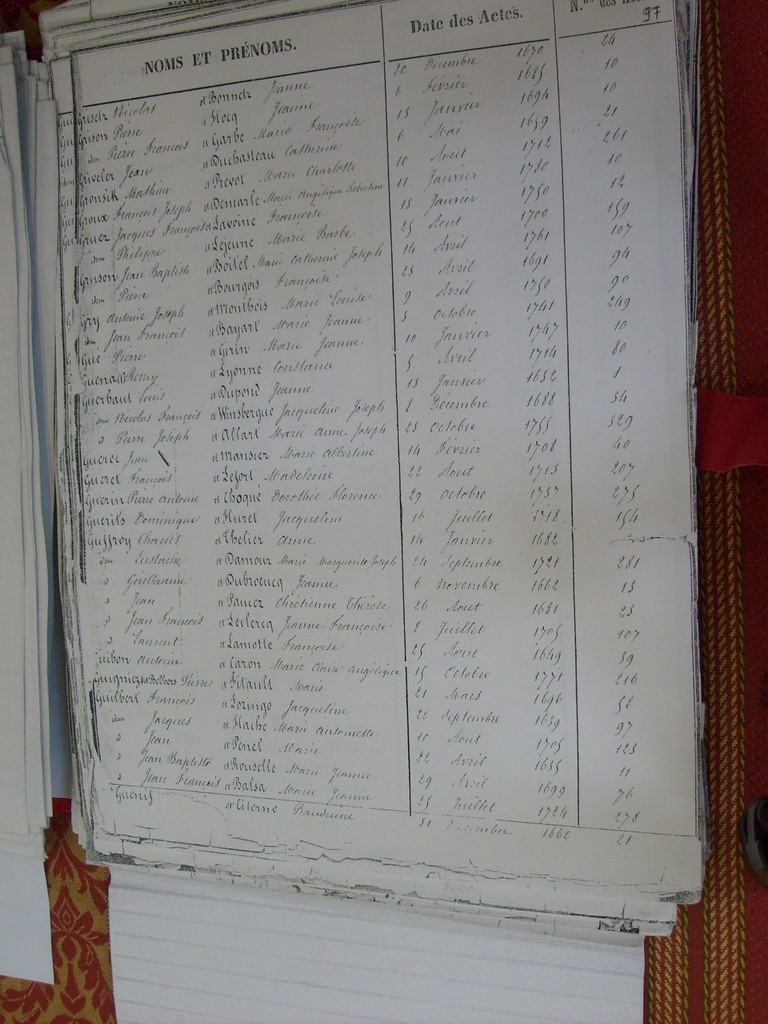 NOMS ET PRÉNOMS. Date des Actes. N.os des
97
Griselz Nicolas et Bonnetz Jeanne 20 Decembre 1670 24
Grison Pierre et Flocq Jeanne 6 Février 1685 10
idem Pierre François et Garbe Marie Françoise 13 Janvier 1694 10
Griveler Jean et Duchasteau Catherine 6 Mai 1659 21
Gronsik Mathieu et Prevot Marie Charlotte 10 Aout 1712 261
Groux François Joseph et Demarle Marie Angélique Robertine 11 Janvier 1780 10
Gruez Jacques François et Lavoine Françoise 13 Janvier 1750 12
idem Philippe et Lejeune Marie Barbe 25 Aout 1700 159
Gruson Jean Baptiste et Boitel Marie Catherine Joseph 14 Avril 1761 107
idem Pierre et Bourgois Françoise 23 Avril 1691 94
Gry Antoine Joseph et Montbois Marie Louise 9 Avril 1750 90
idem Jean François et Bayart Marie Jeanne 5 Octobre 1741 249
Gue Pierre et Girin Marie Jeanne 10 Janvier 1747 10
Remy et Lyonne Constance 5 Avril 1714 80
Guerbaut Louis et Dupond Jeanne 13 Janvier 1652 1
idem Nicolas François et Winsbergue Jacqueline Joseph 8 Décembre 1688 34
" Pierre Joseph et Allart Marie Anne Joseph 23 Octobre 1755 329
Guerec Jean et Monsier Marie Albertine 14 Février 1708 40
Gueret François et Lefort Madeleine 22 Aout 1713 207
Guerin Pierre Antoine et Choqué Dorothée Florence 29 Octobre 1757 275
Guerils Dominique et Huret Jacqueline 16 Juillet 1718 154
Guffroy Charles et Thelier Anne 14 Janvier 1682
idem Eustache et Damour Marie Marguerite Joseph 24 Septembre 1721 281
" Guillaume et Dubrocucq Jeanne 6 Novembre 1662 13
" Jean et Paucez Chretienne Thérèse 26 Aout 1681 23
" Jean François et Leclercq Jeanne Françoise 8 Juillet 1705 107
" Laurent et Lamotte Françoise 25 Aout 1649 39
Guibon Antoine et Caron Marie Claire Angélique 15 Octobre 1771 216
Pierre et Fitault Marie 21 Mars 1696 58
Guilbert François et Loringo Jacqueline 22 Septembre 1639 97
idem Jacques et Hache Marie Antoinette 10 Aout 1705 123
" Jean et Penel Marie 22 Avril 1635 11
" Jean Baptiste et Rouselle Marie Jeanne 29 Avril 1699 76
" Jean François et Balsa Marie Jeanne 25 Juillet 1724 278
et Citerne 31 Decembre 1662 21